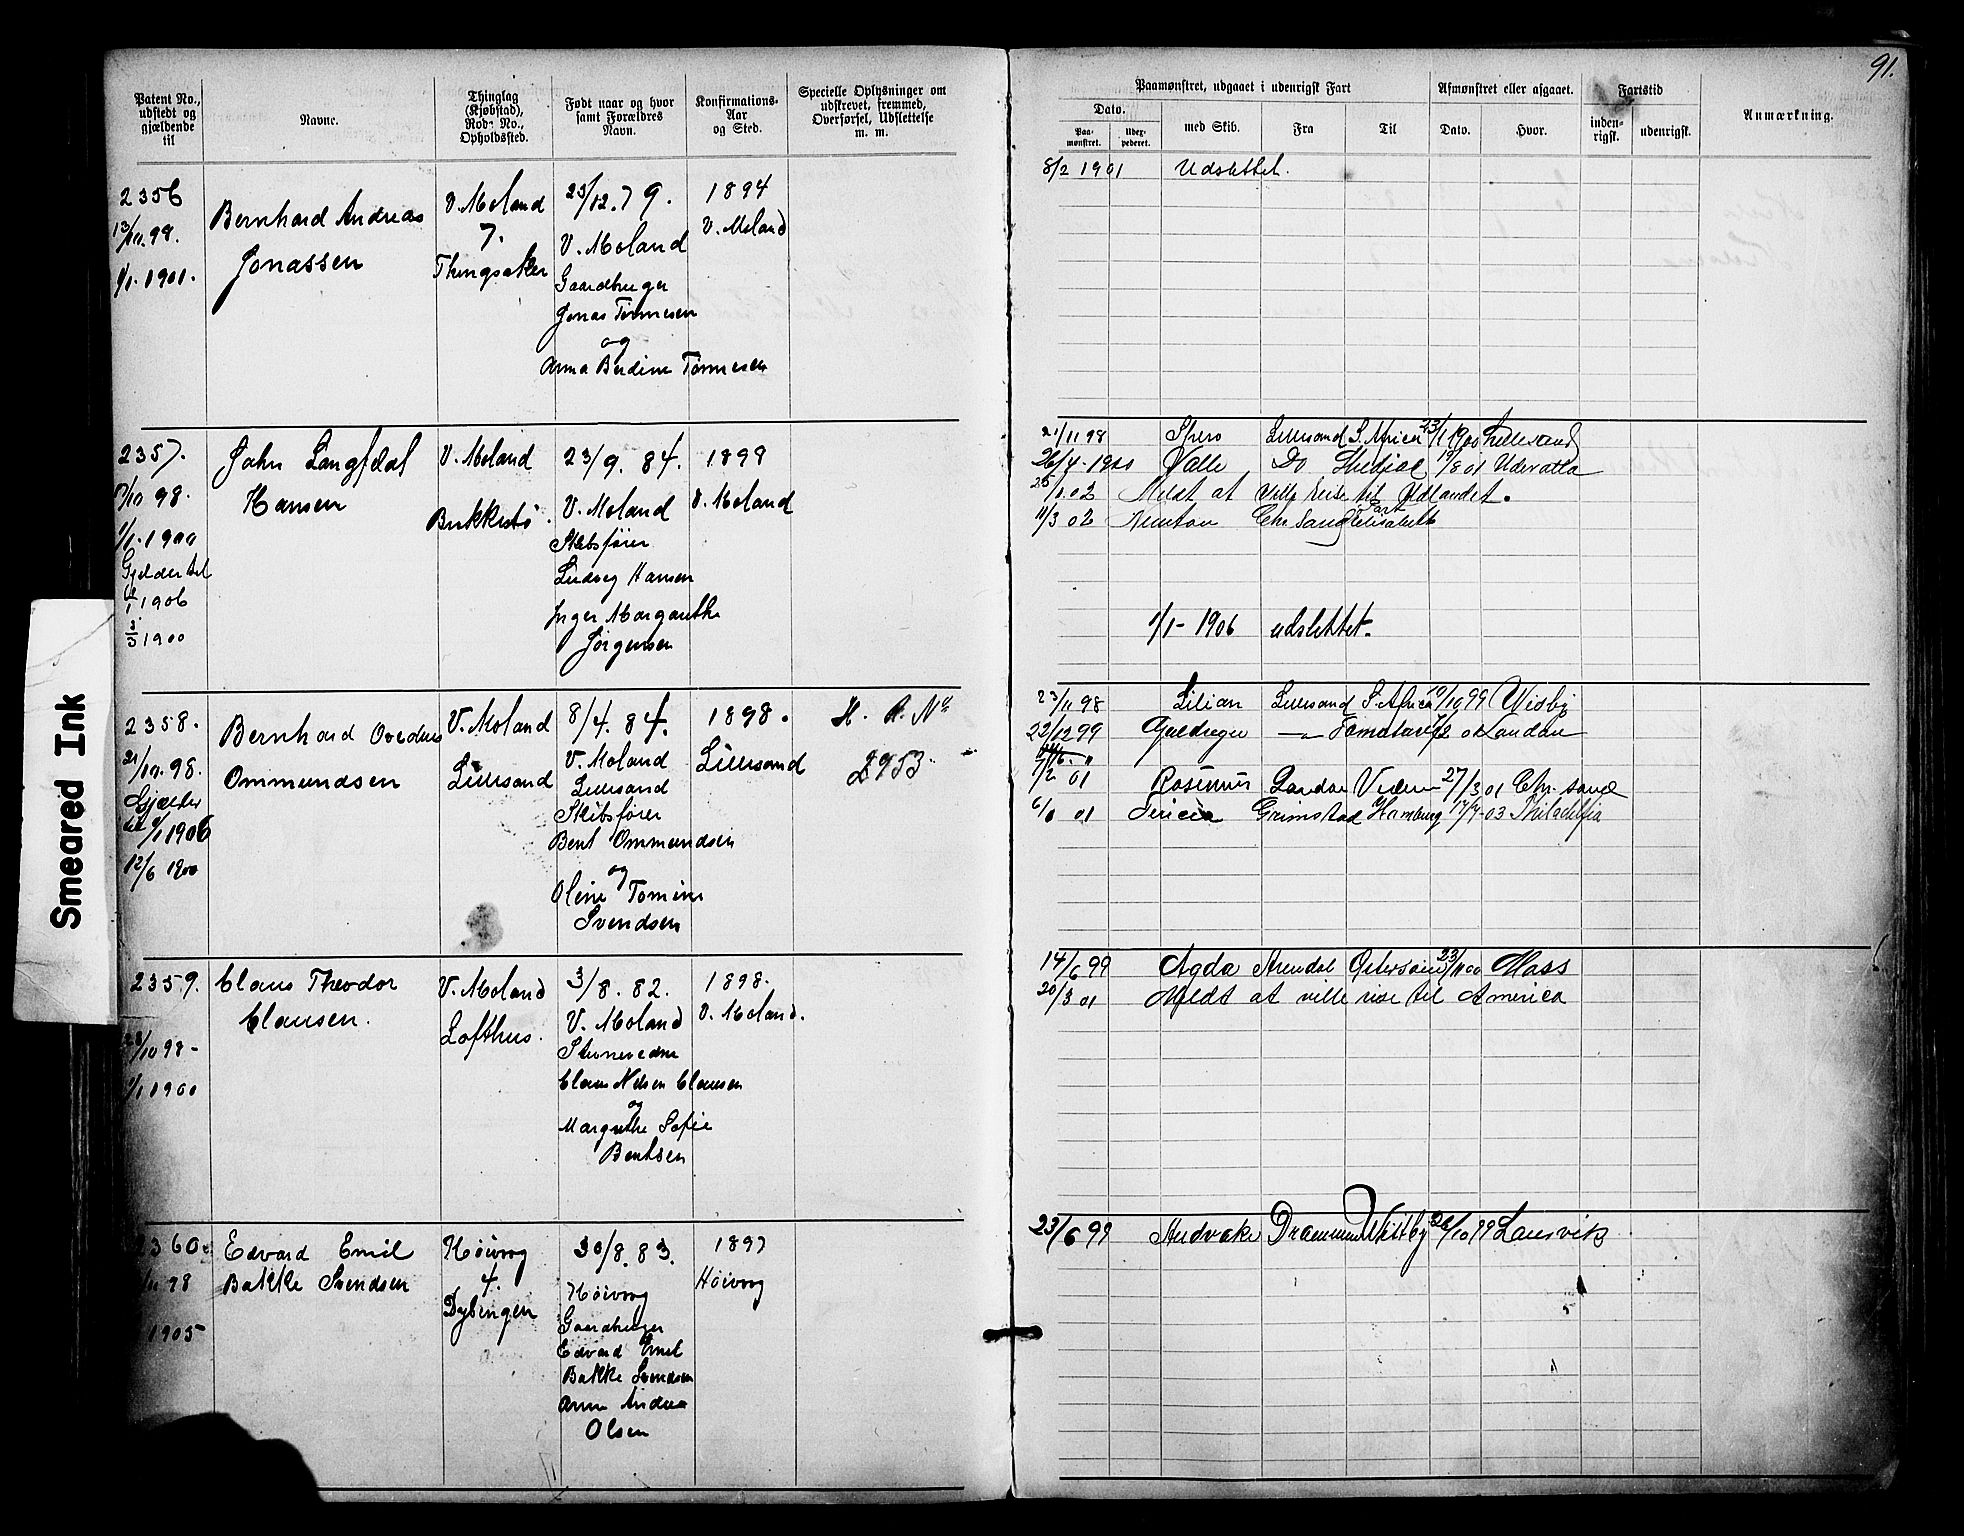 91.
Patent No., udstedt og gjældende til
Navne.
Thinglag (Kjøbstad), Rode No., Opholdssted.
Født naar og hvor samt Forældres Navn.
Konfirmations-Aar og Sted.
Specielle Oplysninger om udskrevet, fremmed, Overførsel, Udslettelse m. m.
Paamønstret, udgaaet i udenrigsk Fart
Dato.
Paamønstret.
med Skib.
Fra
Til
Afmønstret eller afgaaet.
Dato.
Hvor.
Fartstid
indenrigsk.
udenrigsk.
Anmærkning.
2356
13/10. 98.
1/1. 1901.
Bernhard Andreas
Jonassen
V. Moland
7.
Thingsaker
23/12. 79.
V. Moland
Gaardbruger
Jonas Tønnesen
og
Anna Berdine Tønnesen
1894
V. Moland
8/2 1901 Udslettet.
2357.
98.
1/1. 1900
Gjelder til
1/1 1906
1900
John Langfdal
Hansen
V. Moland
Brekkestø.
23/9. 84.
V. Moland
Skibsfører
Ludvig Hansen
Inger Margarethe
Jørgensen
1898
V. Moland
21/11 98 Spero Lillesand S. Africa 1900 Lillesand
26/4. 1900 Valle Do
Meldt at ville reise til Udlandet.
11/3 02 Newton Chr Sand Port Elisabeth
1/1- 1906 udslettet.
2358.
21/10. 98.
Gjælder
til 1/1 1906
12/6 1900
Bernhard Ovedius
Ommundsen
V. Moland
Lillesand
8/4. 84.
V. Moland
Lillesand
Skibsfører
Bent Ommundsen
og
Oline Tomine
Svendsen
1898.
Lillesand
H. R. No
2953
23/11 98 Lilian Lillesand S. Africa 10/10 99 Wisby
22/12 99 London
1/2 01 London 27/3 01 Chr. sand
01 Grimstad Hamburg 17/7-03 Philadelfia
2359.
28/10 98-
1/1 1900
Claus Theodor
Clausen.
V. Moland
Lofthus.
3/8. 82.
V. Moland
Claus Nilsen Clausen
og
Margrethe Sofie
Bentsen
1898.
V. Moland.
14/6 99 Agda Arendal 23/11 00 Moss
20/3 01 Meldt at ville reise til America
2360.
98
1905
Edvard Emil
Bakke Svendsen
Høivog
4.
Dybingen
30/8. 83.
Høivog
Gaardbruger
Edvard Emil
Bakke Svendsen
Anne Andrea
Olsen
1897
Høivog
23/6 99 Andvake Drammen Whitby 26/10 99 Laurvik
Smeared Ink